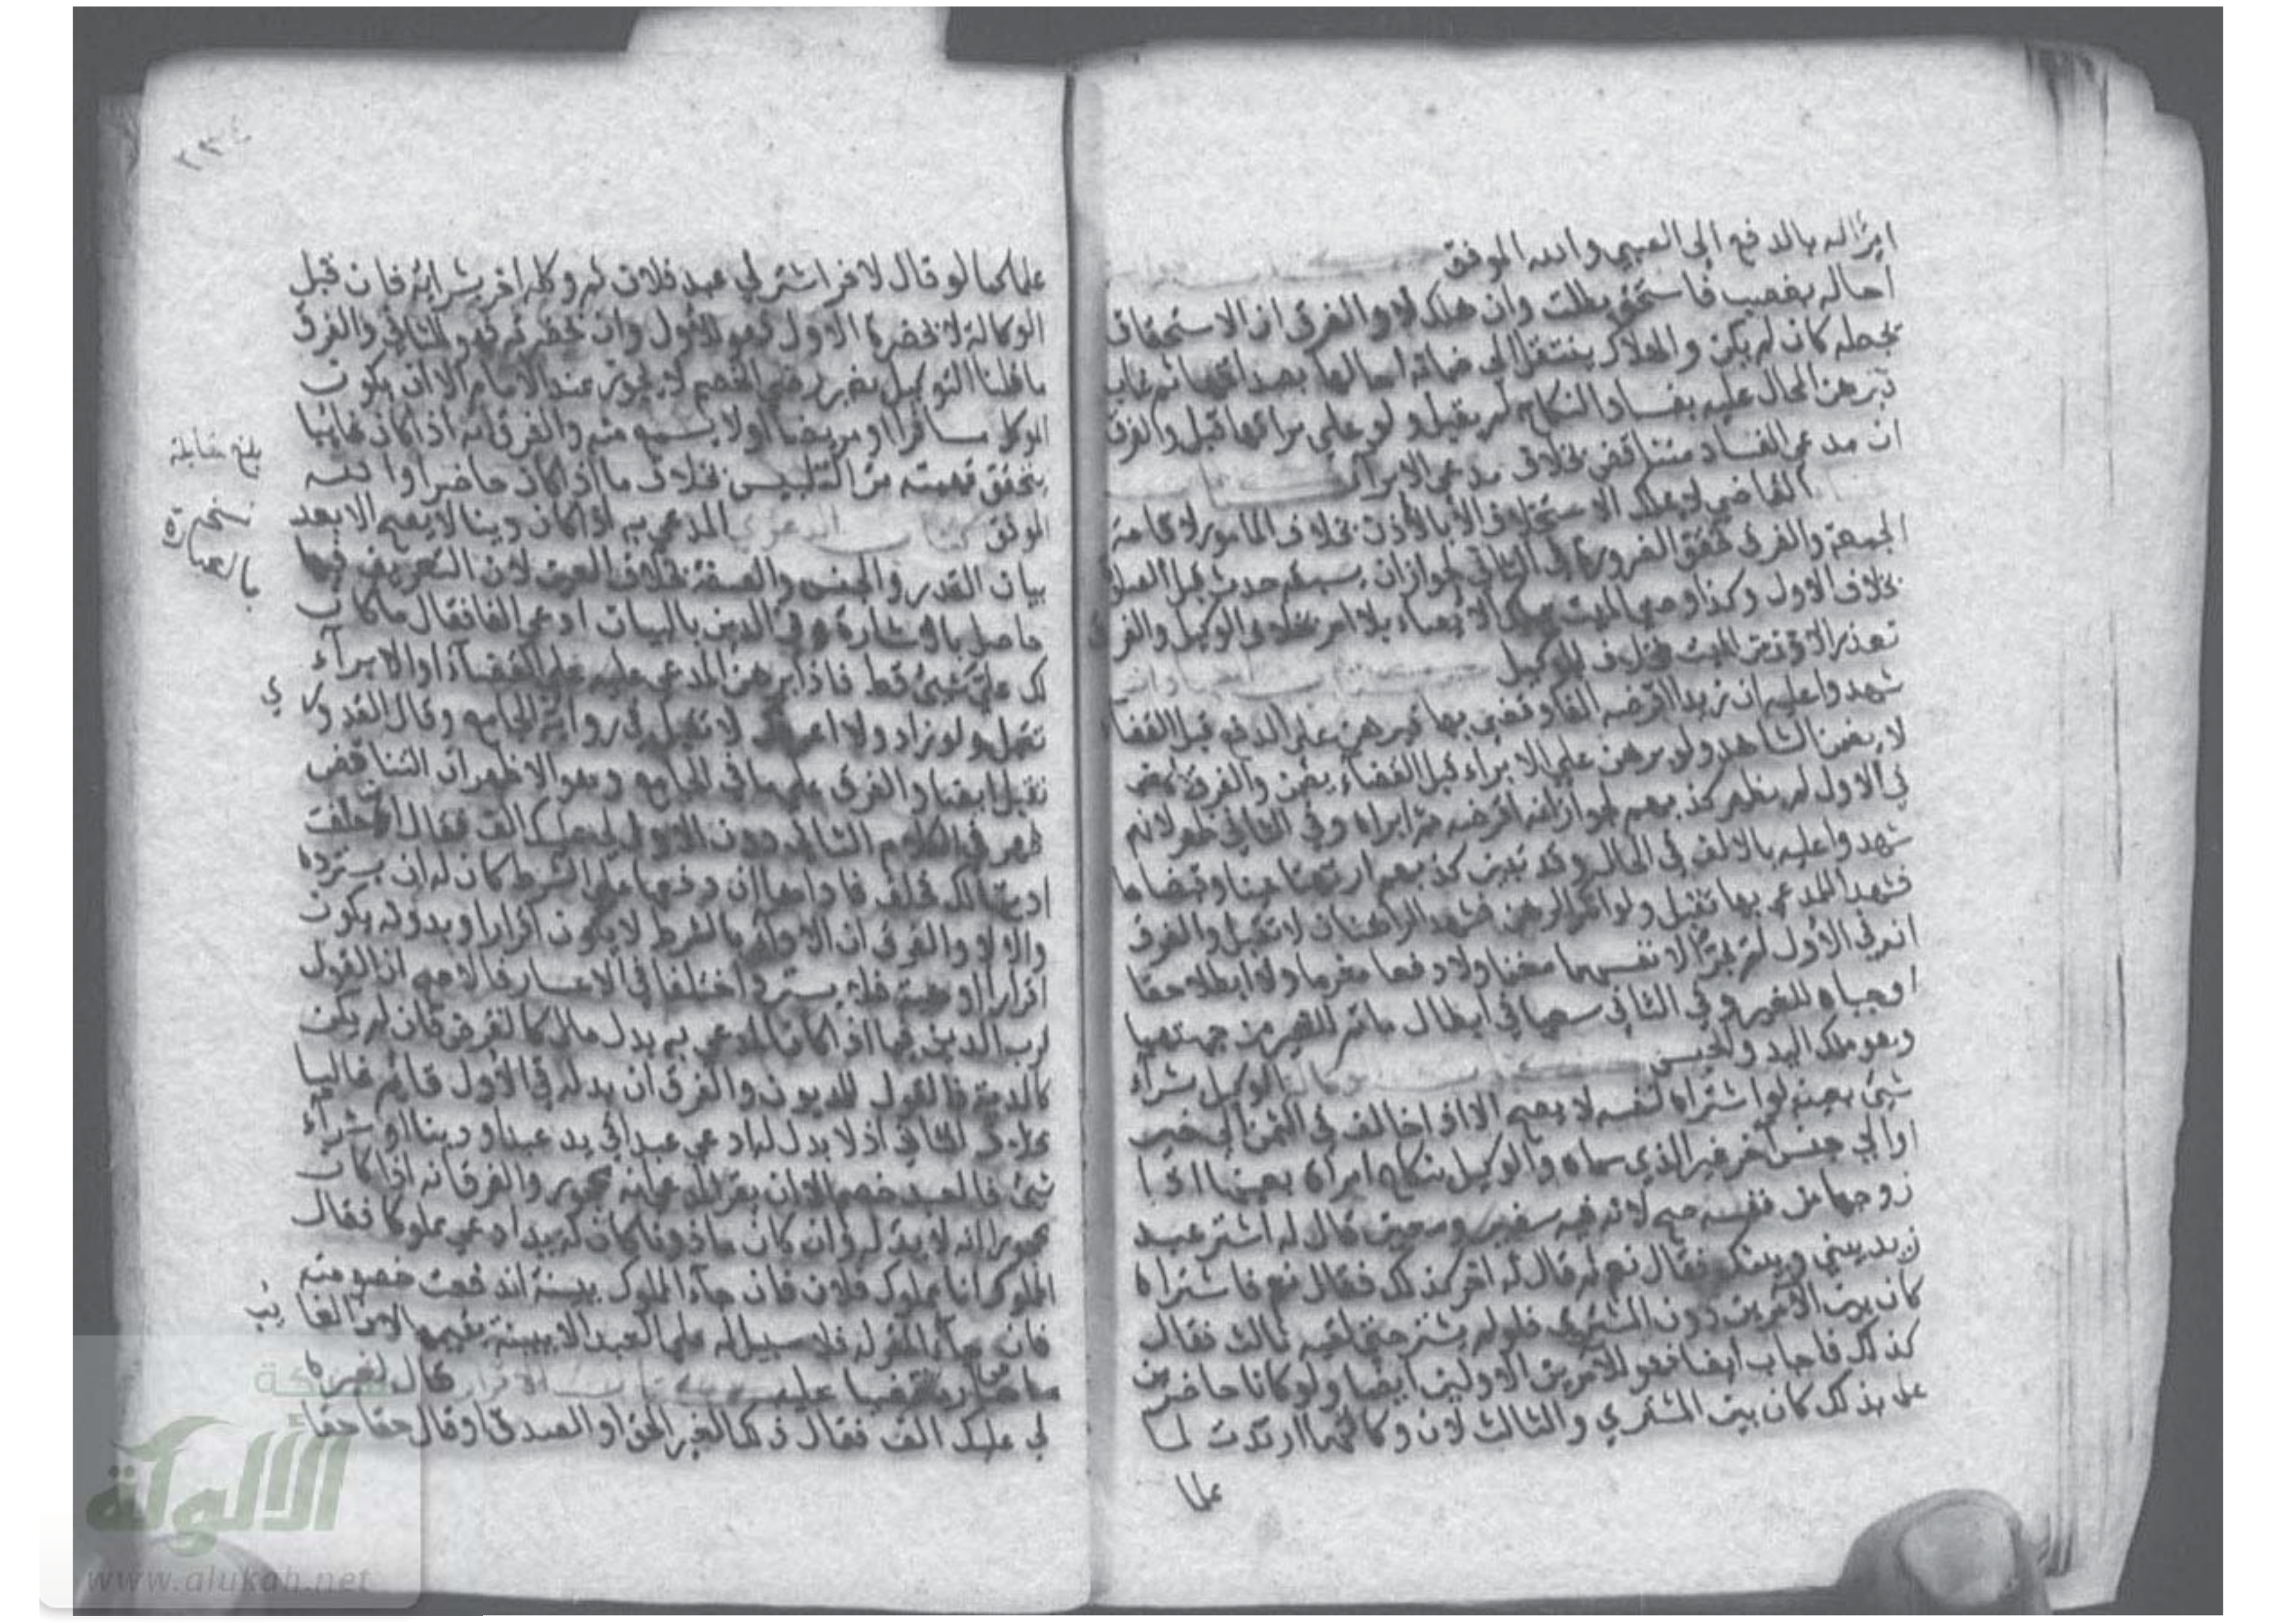 امرا له بالدفع إلى الصبي والله الموفق
احاله بغصب فاستحق بطلت وان هلك لا والفرق ان الاستحقاق
يجعله كان لم يكن والهلاك ينتقل الى ضمانه احالها بعد ثم غاب
برهن المحال عليه بفساد النكاح لم يقبل ولو على قبل والفرق
ان مدعي الفساد متناقض بخلاف مدعي الابراء
القاضي لا يملك الاستخلاف الا بالاذن بخلاف المامور لاقامة
الجمعة والفرق تحقق الضرورة في الثاني لجواز ان يسبقه حدث قبل الصلاة
بخلاف الاول وكذا وصي الميت يملك الايصاء بلا امر بخلاف الوكيل والفرق
تعذر الاذن من الميت بخلاف الموكل
شهدوا عليه ان زيدا اقرضه الفا وقضي بها فبرهن على الدفع قبل القضا
لا يضمن الشاهد ولو برهن على الابراء قبل القضاء يضمن والفرق
في الاول لم يظهر كذبهم لجواز انه اقرضه ثم ابراه وفي الثاني ظهر لانهم
شهدوا عليه بالالف في الحال وقد تبين كذبهم ارتهنا عينا وقبضاها
فشهدا للمدعي بها تقبل ولو انكر الرهن فشهد الراهنان لا تقبل والفرق
انه في الاول لم يجرا لانفسهما مغنما ولا دفعا مغرما وانما ابطلا حقا
اوجباه للغير وفي الثاني سعيا في ابطال ما تم للغير من جهتهما
وهو ملك اليد والحبس الوكيل بشراء
شيئ بعينه لو اشتراه لنفسه لا يصح الا اذا خالف في الثمن الى خير
او الى جنس اخر غير الذي سماه والوكيل بنكاح امراة بعينها اذا
زوجها من نفسه صح لانه فيه سفير ومعبر قال له اشتر عبد
زيد بيني وبينك فقال نعم ثم قال له اخر كذلك فقال نعم فاشتراه
كان بين الامرين دون المشتري فلو لم يشتر حتى لقيه ثالث فقال
كذلك فاجاب ايضا فهو للامرين الاولين ايضا ولو كانا حاضرين
علما بذلك كان بين المشتري والثالث لان وكالتهما ارتدت لما
علما
٢٣٤
علما كما لو قال لاخر اشتر لي عبد فلان ثم وكله اخر بشرائه فان قبل
الوكالة لا بحضرة الاول فهو للاول وان بحضرته فهو للثاني والفرق
ما قلنا التوكيل بغير رضى الخصم لا يجوز عند الامام الا ان يكون
الموكل مسافرا او مريضا او لا يسميه منه والفرق انه اذا كان غايبا
يتحقق تهمته من التلبيس بخلاف ما اذا كان حاضرا والله
الموفق كتاب الدعوى المدعى به اذا كان دينا لا يصح الا بعد
بيان القدر والجنس والصفة بخلاف العين لان التعريف فيها
حاصل بالاشارة وفي الدين بالبيان ادعى الفا فقال ما كان
لك علي شيئ قط فاذا برهن المدعى عليه على القضاء او الابراء
تقبل ولو زاد ولا اعرفك لا تقبل في رواية الجامع وقال القدوري
تقبل ايضا والفرق على ما في الجامع وهو الاظهر ان التناقض
ظهر في الكلام الثاني دون الاول لي عليك الف فقال ان حلفت
ادیتها لك فحلف فاداها ان دفعها على الشرط كان له ان يسترده
والا لا والفرق ان الاداء بالشرط لا يكون اقرارا وبدونه يكون
اقرارا او هبة فلا يسترد اختلفا في الاعسار فالاصح ان القول
لرب الدين فيما اذا كان المدعى به بدل مال كالقرض فان لم يكن
كالدية فالقول للمديون والفرق ان بدله في الاول قايم غالبا
بخلاف الثاني اذ لا بدل له ادعى عبدا في يد عبد او دينا او شراء
شيئ فالعبد خصم الا ان يقر المدعي انه محجور والفرق انه اذا كان
محجورا انه لا يد له وان كان ماذونا كان له يد ادعى مملوكا فقال
المملوك انا مملوك فلان فان جاء المملوك ببينة اندفعت خصومته
فان جاء المقر له فلا سبيل له على العبد الا ببينة
قال لغيره
لي عليك الف فقال ذلك الخبر الحق او الصدق او قال حقا حقا
بلغ مقابلة